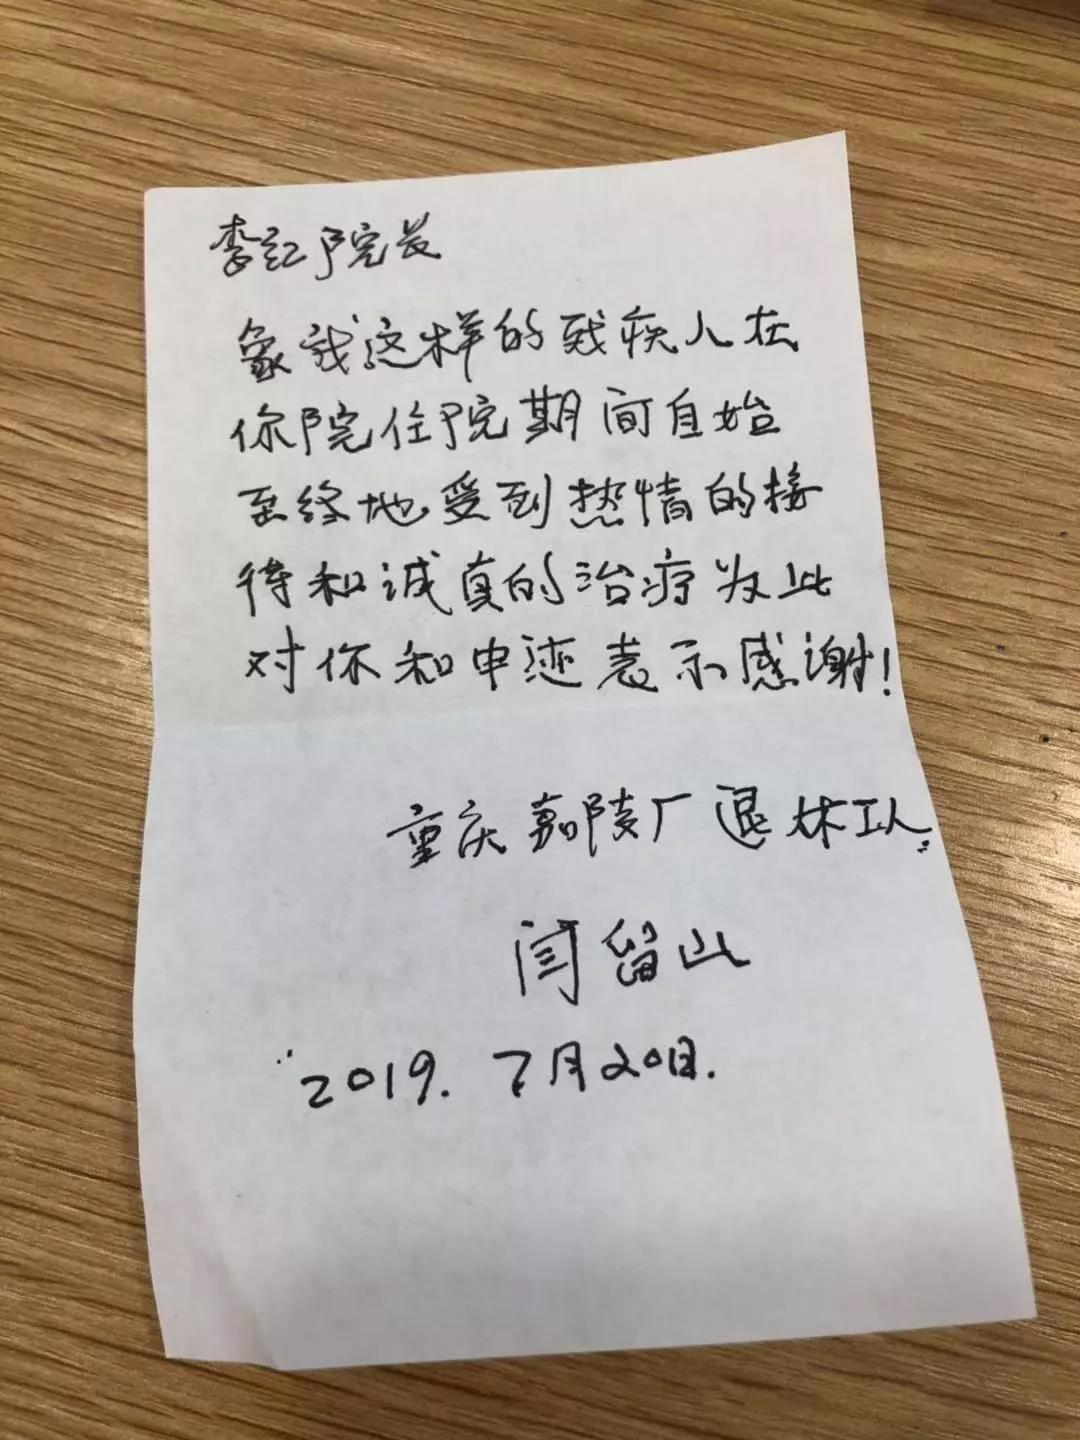 李红院长
象我这样的残疾人在
你院住院期间自始
至终地受到热情的接
待和诚真的治疗为此
对你和申迹表示感谢！
重庆嘉陵厂退休工人
闫留山
2019.7月20日.